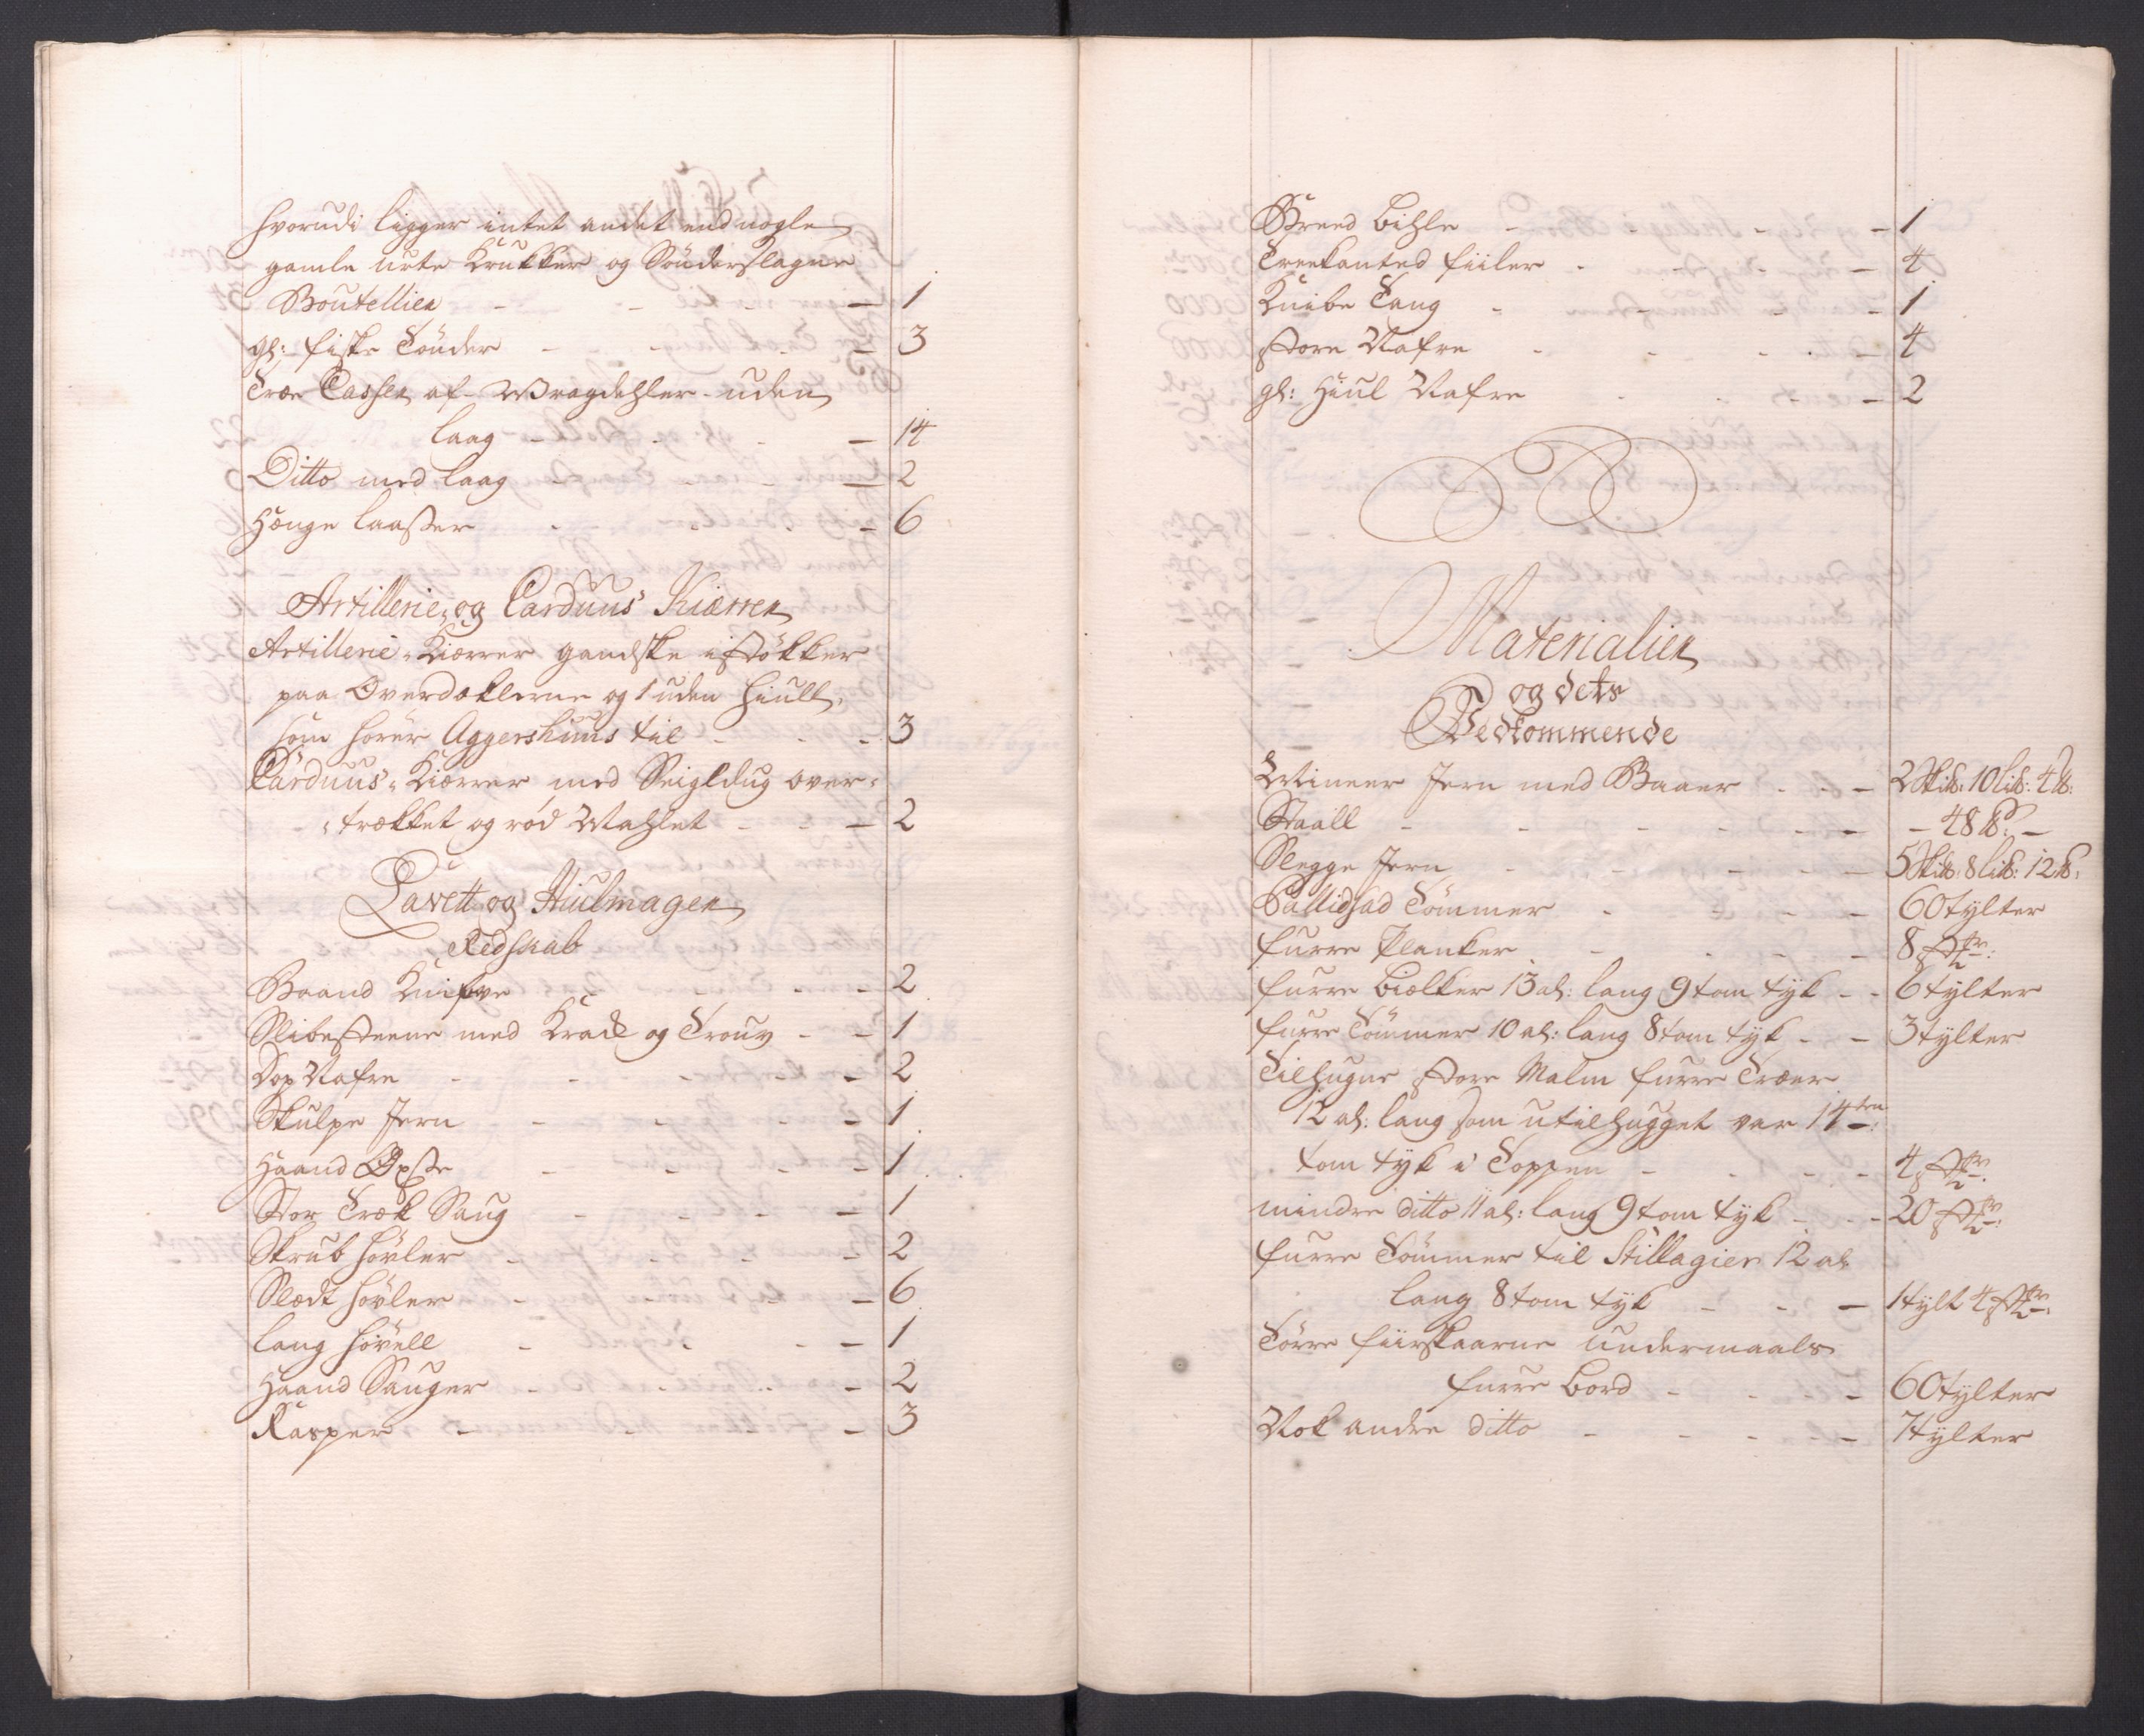 hvorudi ligger intet andet end nogle
gamle urte Krukker og Sönderslagne
Bouteillier - - - 1
gl: fiske Tönder - - - 3
Træe Casser af Wragdehler uden
laag - - - 14
Ditto med laag - - - 2
Hænge laasser - - - 6
Artillerie, og Carduus Kiærrer
Artillerie Kiærrer gandske i støkker
paa Overdæklerne og 1 uden Hiull,
som hører Aggershuus til - - 3
Carduus Kiærrer med Seigldug over-
trækket og rød Mahlet - - - 2
Lavett og Hiulmager
Redskab
Baand Knifve - - - 2
Slibesteene med Krack og Trouv - - 1
Dop Nafre - - - 2
Skulpe Jern - - - 1
Haand Øxse - - - 1
Stor Træk Saug - - - 1
Skrub høvler - - - 2
Slædt høvler - - - 6
lang høvell - - - 1
Haand Sauger - - - 2
Rasper - - - 3
Breed Bihle - - - 1
Treekanted fiiler - - - 4
Knibe Tang - - - 1
store Nafre - - - 4
gl: Hiul Nafre - - - 2
Materialier
og dets
Vedkommende
Mineer Jern med Baaer - - - 2 Sk℔: 10 Li℔: 4 ℔:
Staall - - - 48 ℔: -
Slegge Jern - - - 5 Sk℔: 8 Li℔: 12 ℔:
Pallidsad Tömmer - - - 60 tylter
furre Planker - - - 8 stkr:
furre Biælker 13 al: lang 9 tom tyk - - 6 tylter
furre Tömmer 10 al: lang 8 tom tyk - - 3 tylter
Tilhugne store Malm furre Træer
12 al: lang som utilhugget var 14ten
tom tyk i Toppen - - - 4 stkr:
mindre ditto 11 al: lang 9 tom tyk - - - 20 stkr:
furre Tömmer til Stillagier 12 al
lang 8 tom tyk - - - 1 tylt 4 stkr:
Törre fiirskaarne undermaals
furre Bord - - - 60 tylter
Nok andre ditto - - - 7 tylter